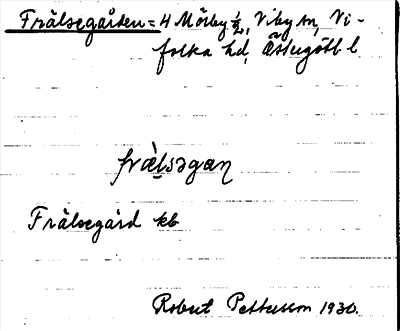 Frälsegården = 4 Mörby ½, Viby sn, Vi-
folka hd, Östergötl l.
fræ̀lsəgaɳ
Frälsegård kb
Robert Pettersson 1930.